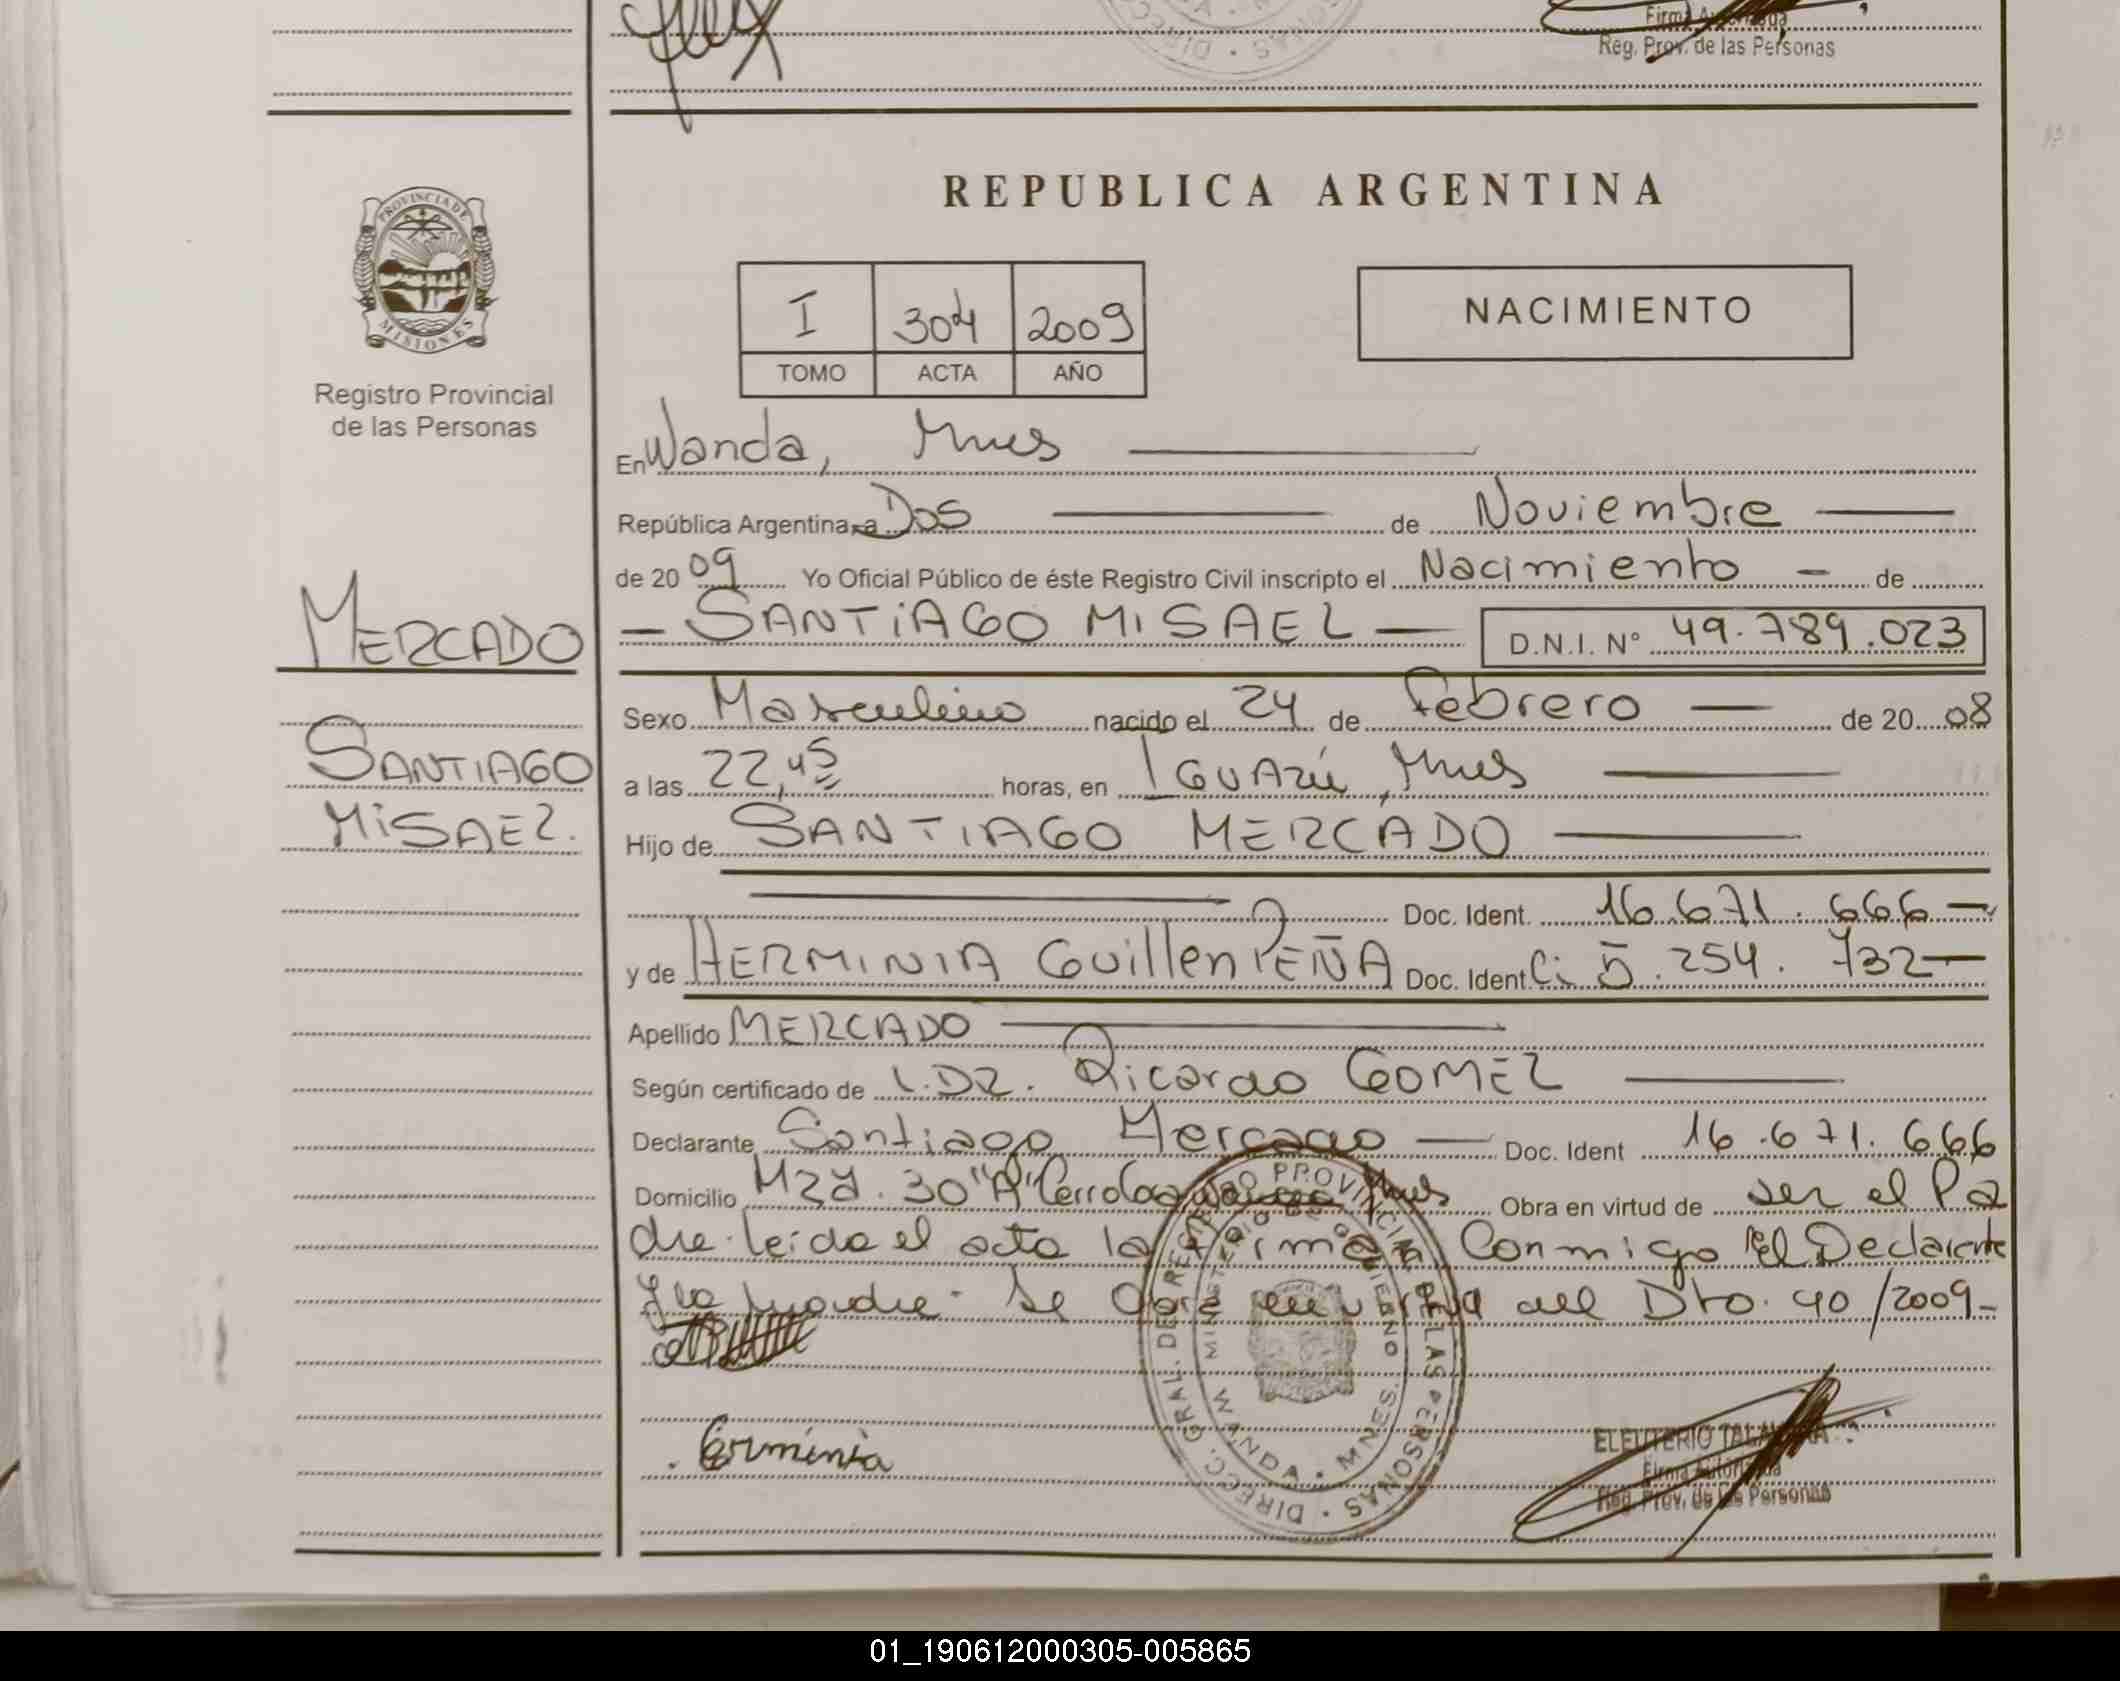 Firma Autorizada
Reg. Prov. de las Personas
PROVINCIA DE
MISIONES
Registro Provincial
de las Personas
MERCADO
SANTIAGO
MISAEL.
REPUBLICA ARGENTINA
I 304 2009
TOMO ACTA AÑO
NACIMIENTO
En Wanda, Mnes
República Argentina, a Dos de Noviembre
de 20 09 Yo Oficial Público de éste Registro Civil inscripto el Nacimiento de
SANTIAGO MISAEL D.N.I. N° 49.789.023
Sexo Masculino nacido el 24 de Febrero de 20 08
a las 22,45 horas, en IGUAZú, Mnes
Hijo de SANTIAGO MERCADO
Doc. Ident. 16.671.666
y de HERMINIA Guillen PEÑA Doc. Ident. C.i 5.254.732
Apellido MERCADO
Según certificado de L.D2. Ricardo GOMEZ
Declarante Santiago Mercado Doc. Ident 16.671.666
Domicilio Mzd. 30 "A" Cerro Mnes Obra en virtud de ser el Pa
dre. leida el acta la firman Conmigo El Declarante
y la Madre. Se Obra en virtud del Dto. 40/2009-
DIRECC. GRAL. DE REGISTRO PROVINCIAL DE LAS PERSONAS
MINISTERIO DE GOBIERNO
WANDA - MNES.
Erminia
ELEUTERIO TALAVERA
Firma Autorizada
Reg. Prov. de las Personas
01_190612000305-005865